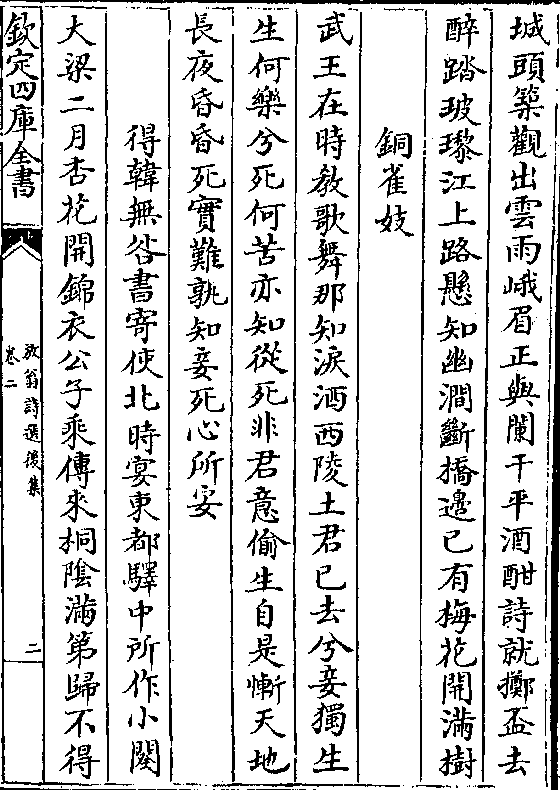 城頭築觀出雲雨峨眉正與闌干平酒酣詩就擲盃去
醉踏玻瓈江上路懸知幽澗斷橋邊已有梅花開滿樹
銅雀妓
武王在時敎歌舞那知淚洒西陵土君已去兮妾獨生
生何樂兮死何苦亦知從死非君意偷生自是慚天地
長夜昏昏死實難孰知妾死心所安
得韓無咎書寄使北時宴東都驛中所作小闋
大梁二月杏花開錦衣公子乘傳來桐陰滿第歸不得
欽定四庫全書
放翁詩選後集
卷二
二